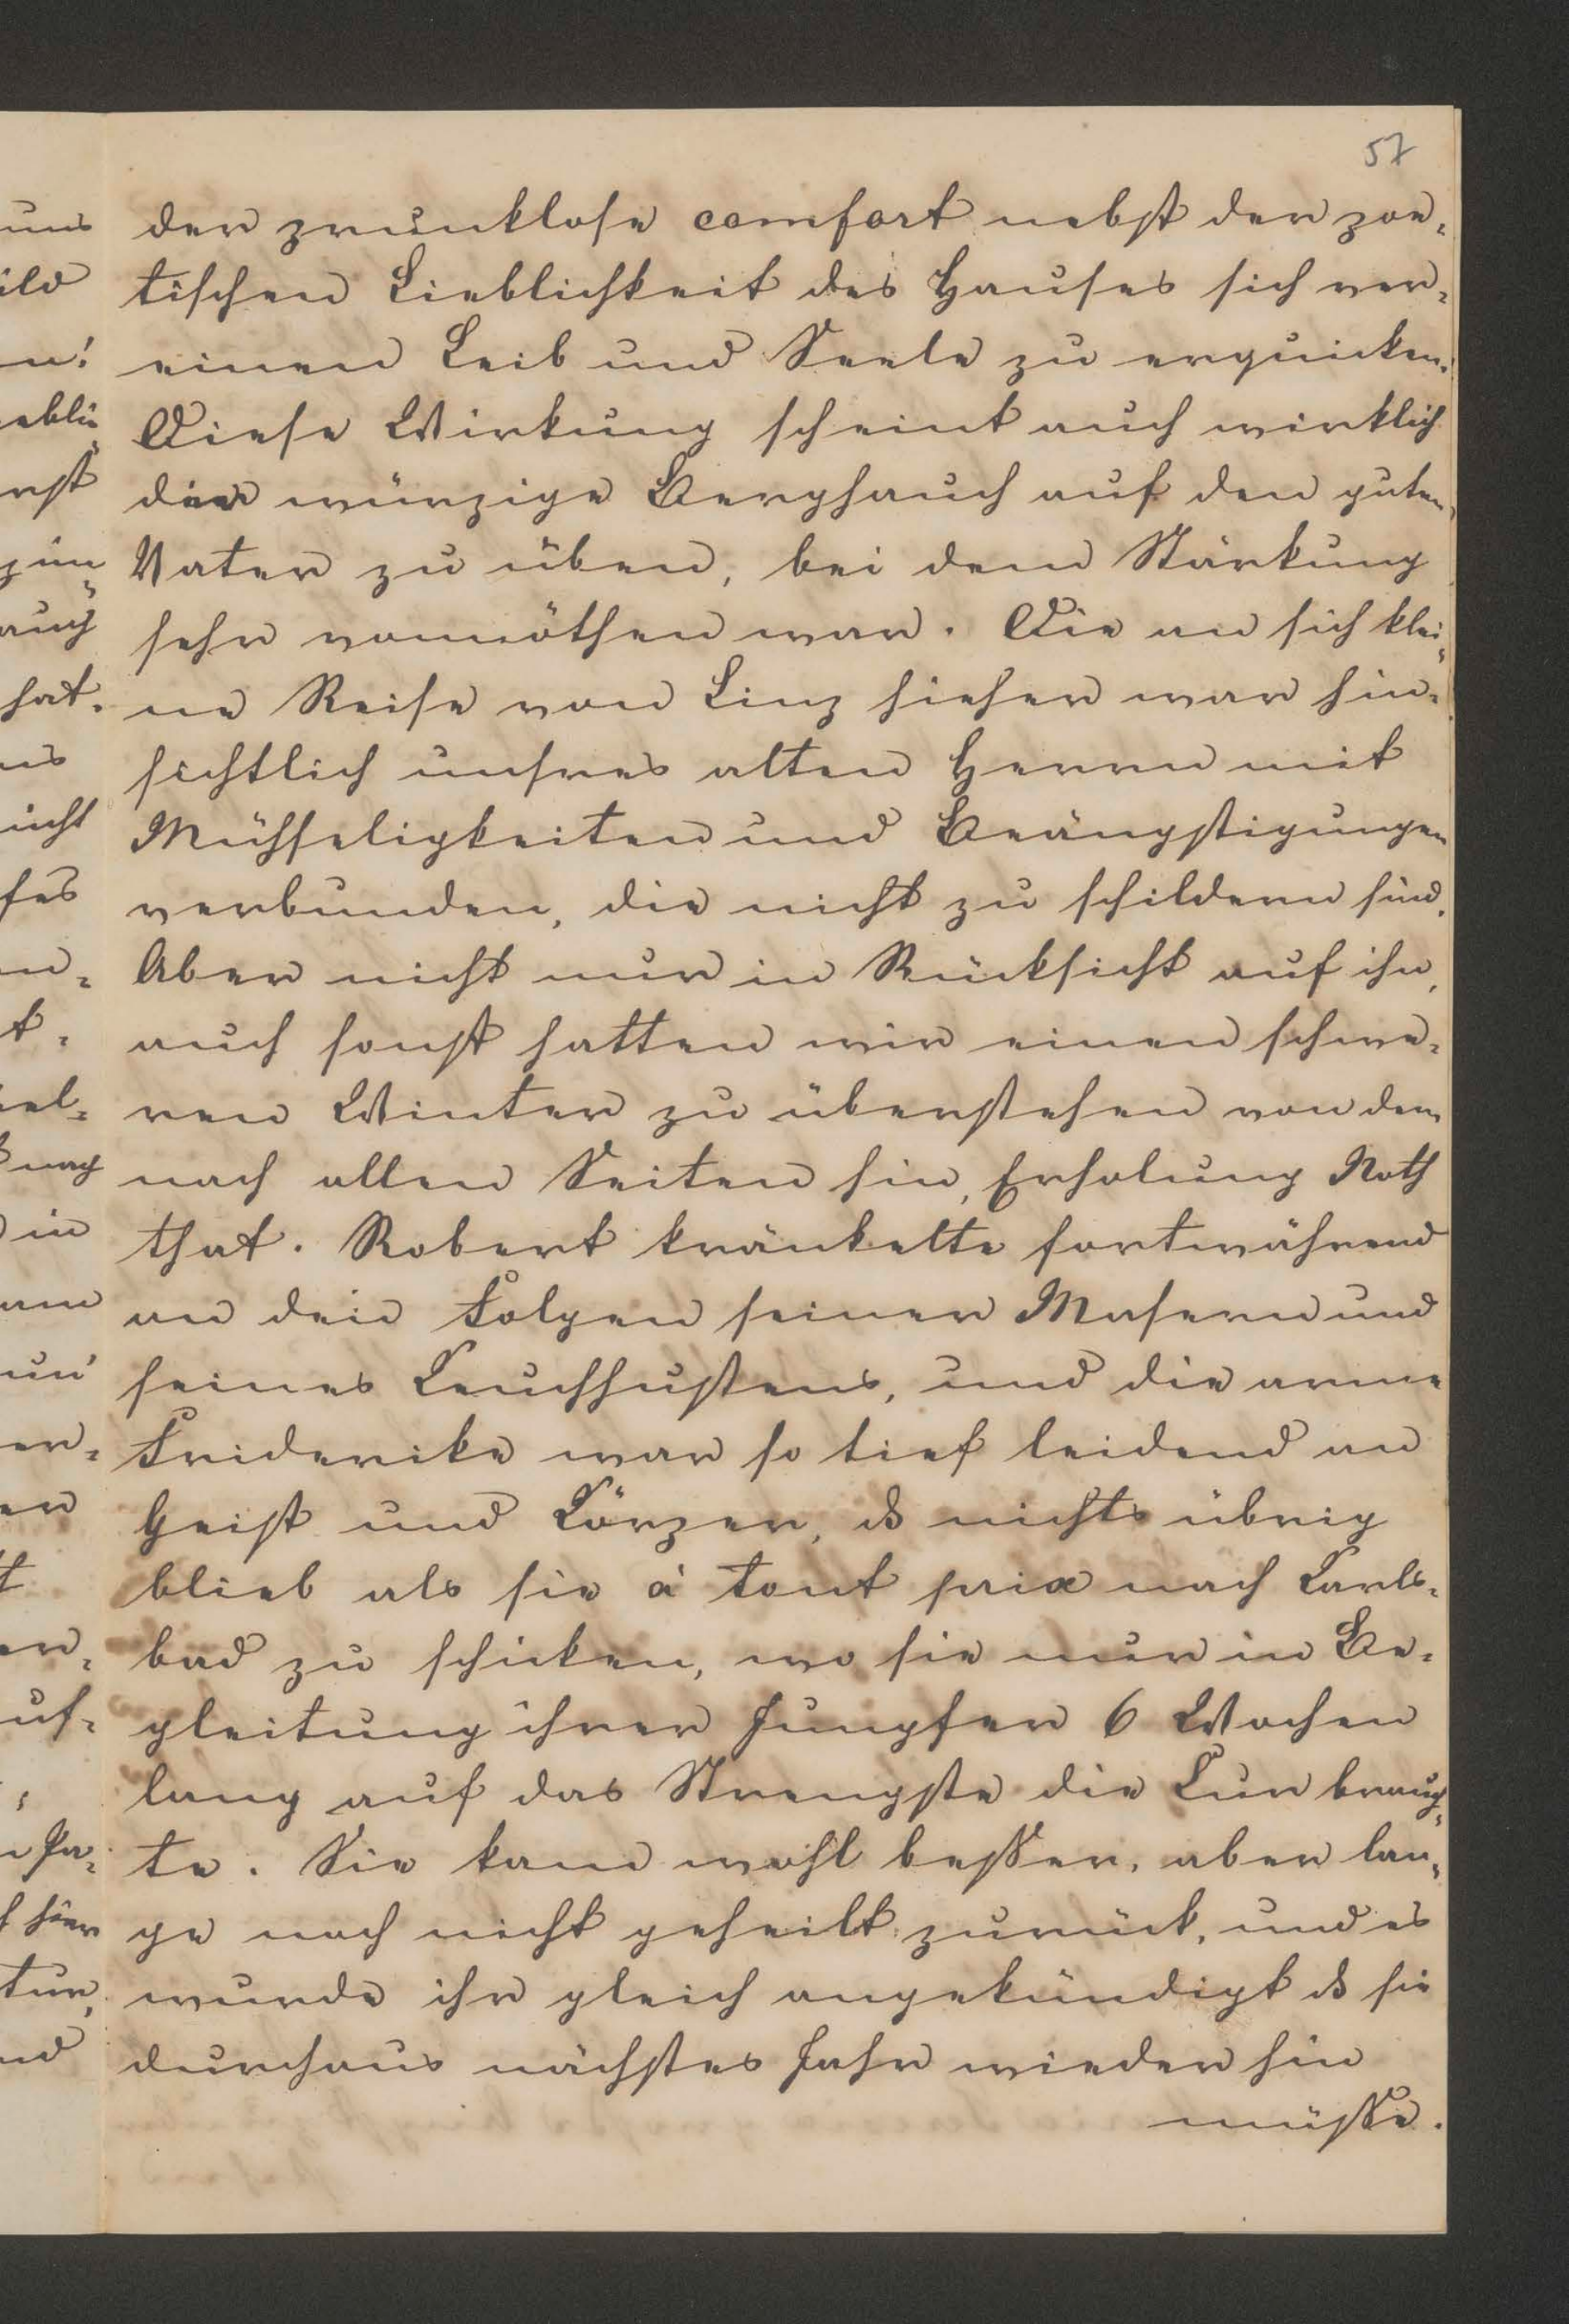 57
der prunklose comfort nebst der poe-
tischen Lieblichkeit des Hauses sich ver-
einen Leib und Seele zu erquicken.
Diese Wirkung scheint auch wirklich
die würzige Berghauch auf den guten
Vater zu üben, bei dem Stärkung
sehr vonnöthen war. Die an sich klei-
ne Reise von Linz hieher war hin-
sichtlich unsres alten Herrn mit
Mühseligkeiten und Beängstigungen
verbunden, die nicht zu schildern sind.
Aber nicht nur in Rücksicht auf ihn,
auch sonst hatten wir einen schwe-
ren Winter zu überstehen von dem
nach allen Seiten hin, Erholung Noth
that. Robert kränkelte fortwährend
an den Folgen seiner Masern und
seines Keuchhustens, und die arme
Friderike war so tief leidend an
Geist und Körper, dß nichts übrig
blieb als sie à tout prix nach Karls-
bad zu schicken, wo sie nur in Be-
gleitung ihrer Jungfer 6 Wochen
lang auf das Strengste die Kur brauch-
te. Sie kam wohl besser, aber lan-
ge noch nicht geheilt zurück, und es
wurde ihr gleich angekündigt dß sie
durchaus nächstes Jahr wieder hin
müsse.